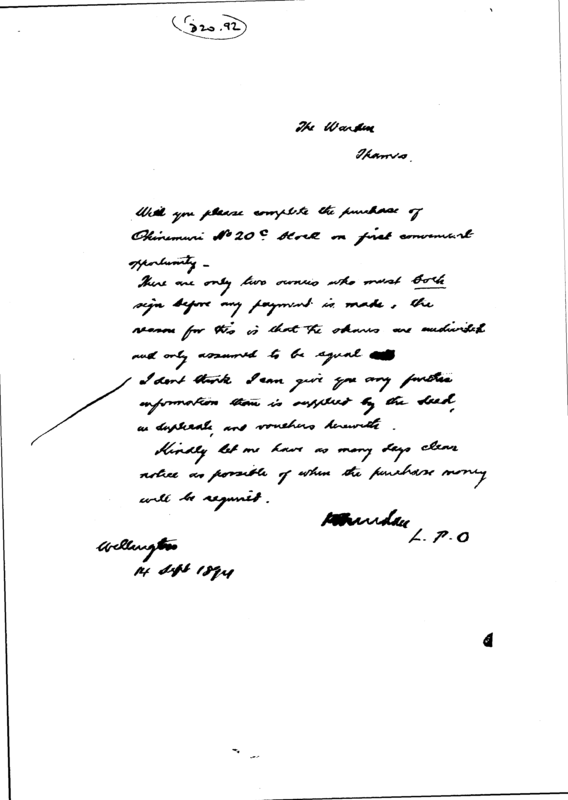 220.92
The Warden
Thames.
Will you please complete the purchase of
Ohinemuri No 20c Block on first convenient
opportunity —
There are only two owners who must both
sign before any payment is made, the
reason for this is that the shares are undivided
and only assumed to be equal
I dont think I can give you any further
information than is supplied by the deed,
in duplicate, and vouchers herewith.
Kindly let me have as many days clear
notice as possible of when the purchase money
will be required.
L. P. O
Wellington
14 Sept 1894